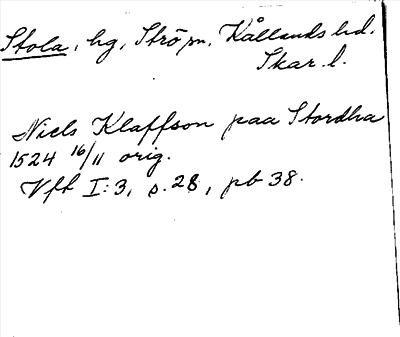 Stola, hg, Strö sn, Kållands hd.
Skar. l.
Niels Klaffson paa Stordha
1524 16/11 orig.
Vft I:3, s. 28, pb 38.